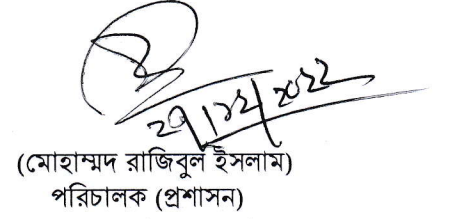 ২৭/১২/২০২২
(মোহাম্মদ রাজিবুল ইসলাম)
পরিচালক (প্রশাসন)